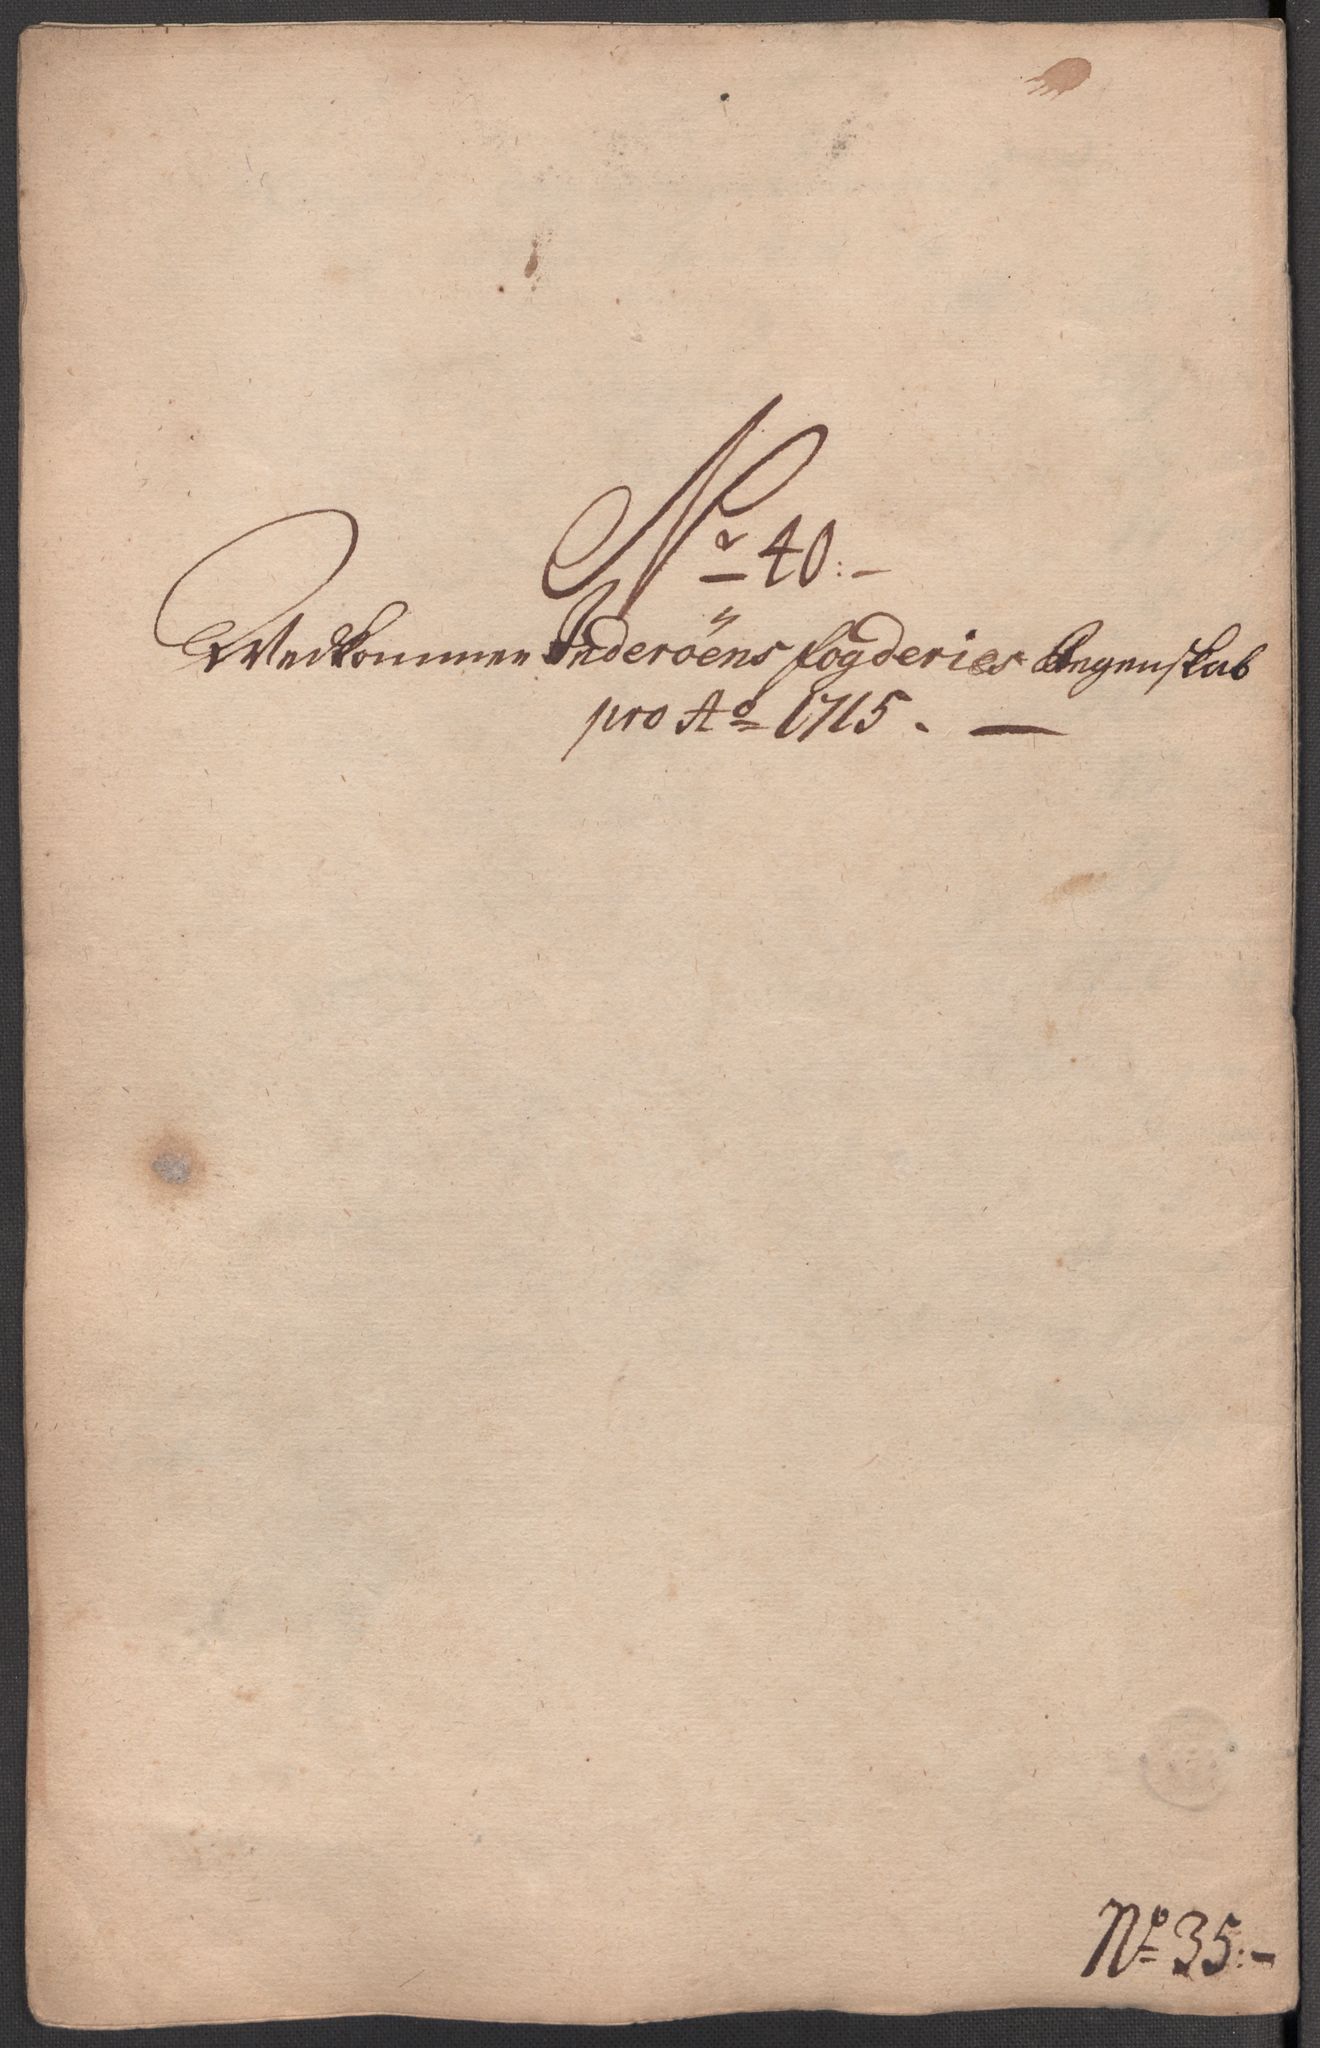 Nr 40:-
Vedkommer Inderöens fogderies Regenskab
pro Ao 1715. —
No 35:-